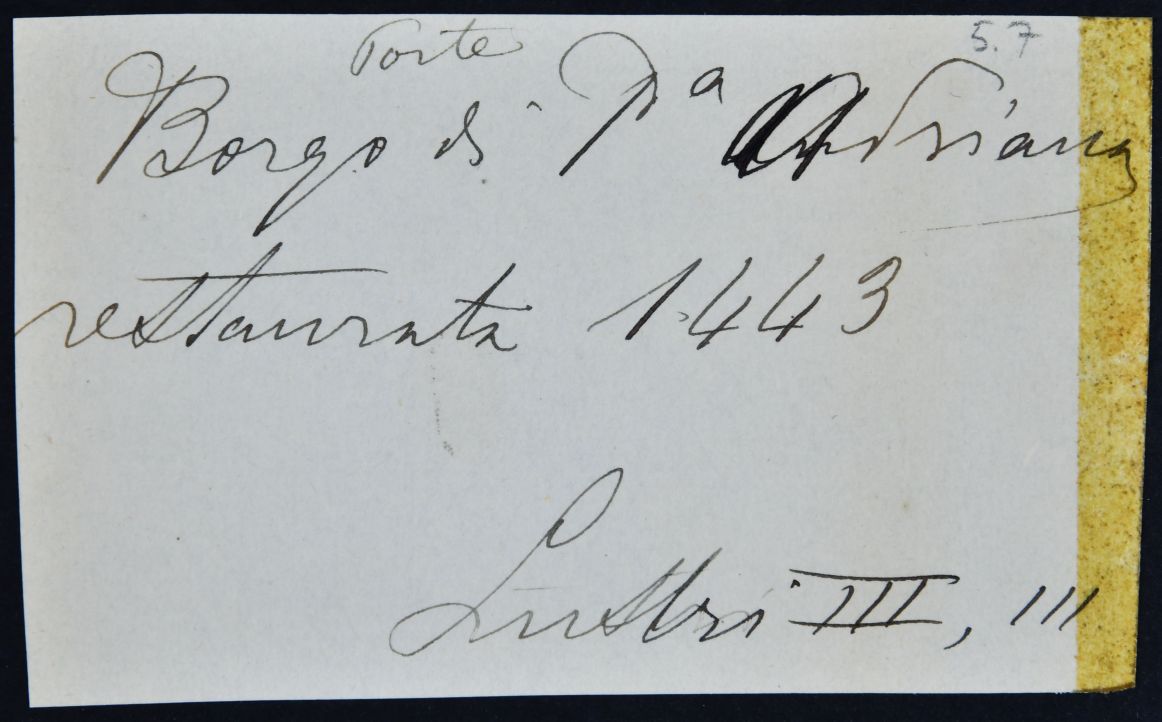 Porte
5.7
Borgo di Pª Adriana
restaurata 1443
Lustri III, III